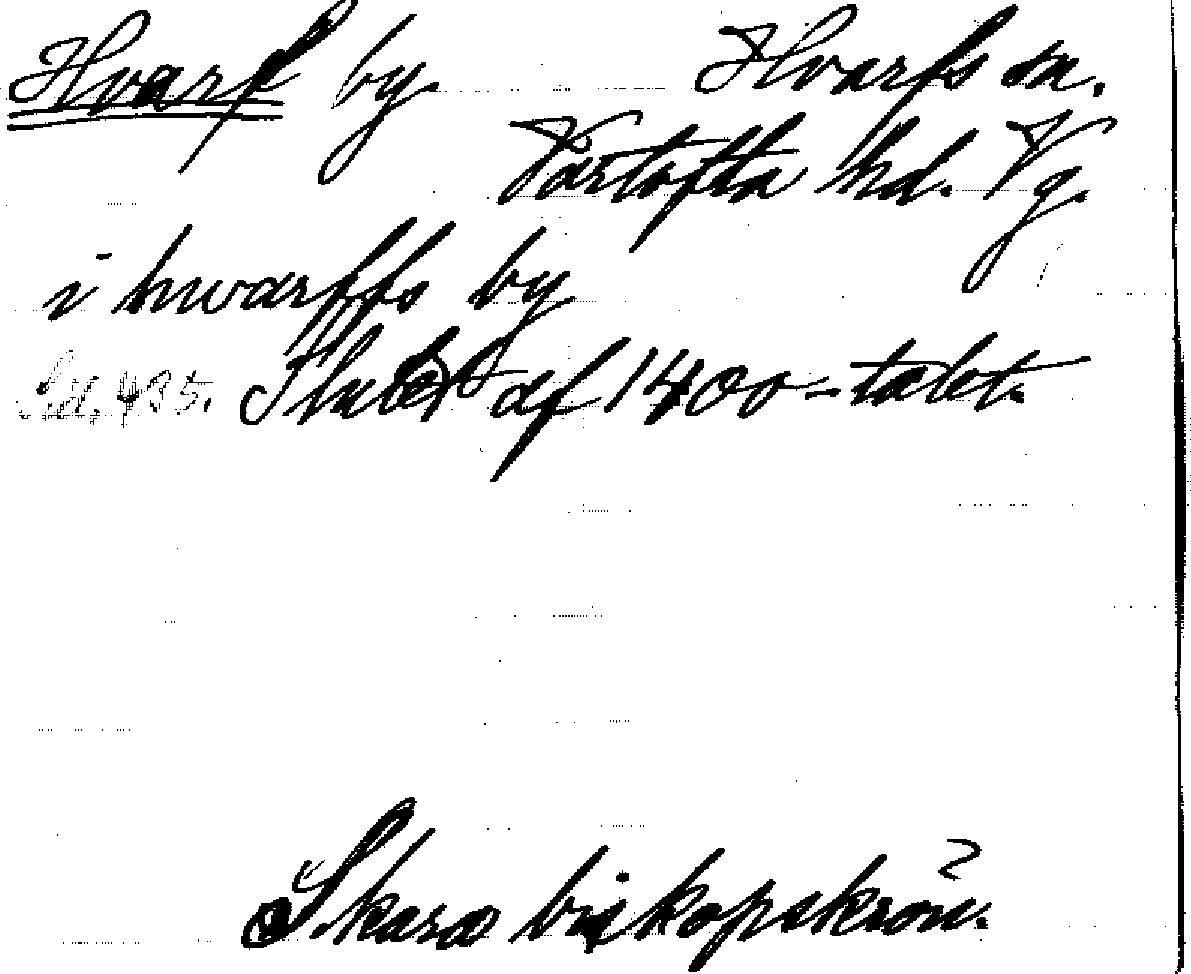 Hvarf by. Hvarfs sn.
Vartofta hd. Vg.
i hwarffs by
435. Slutet af 1400-talet.
Skara biskopskrön.